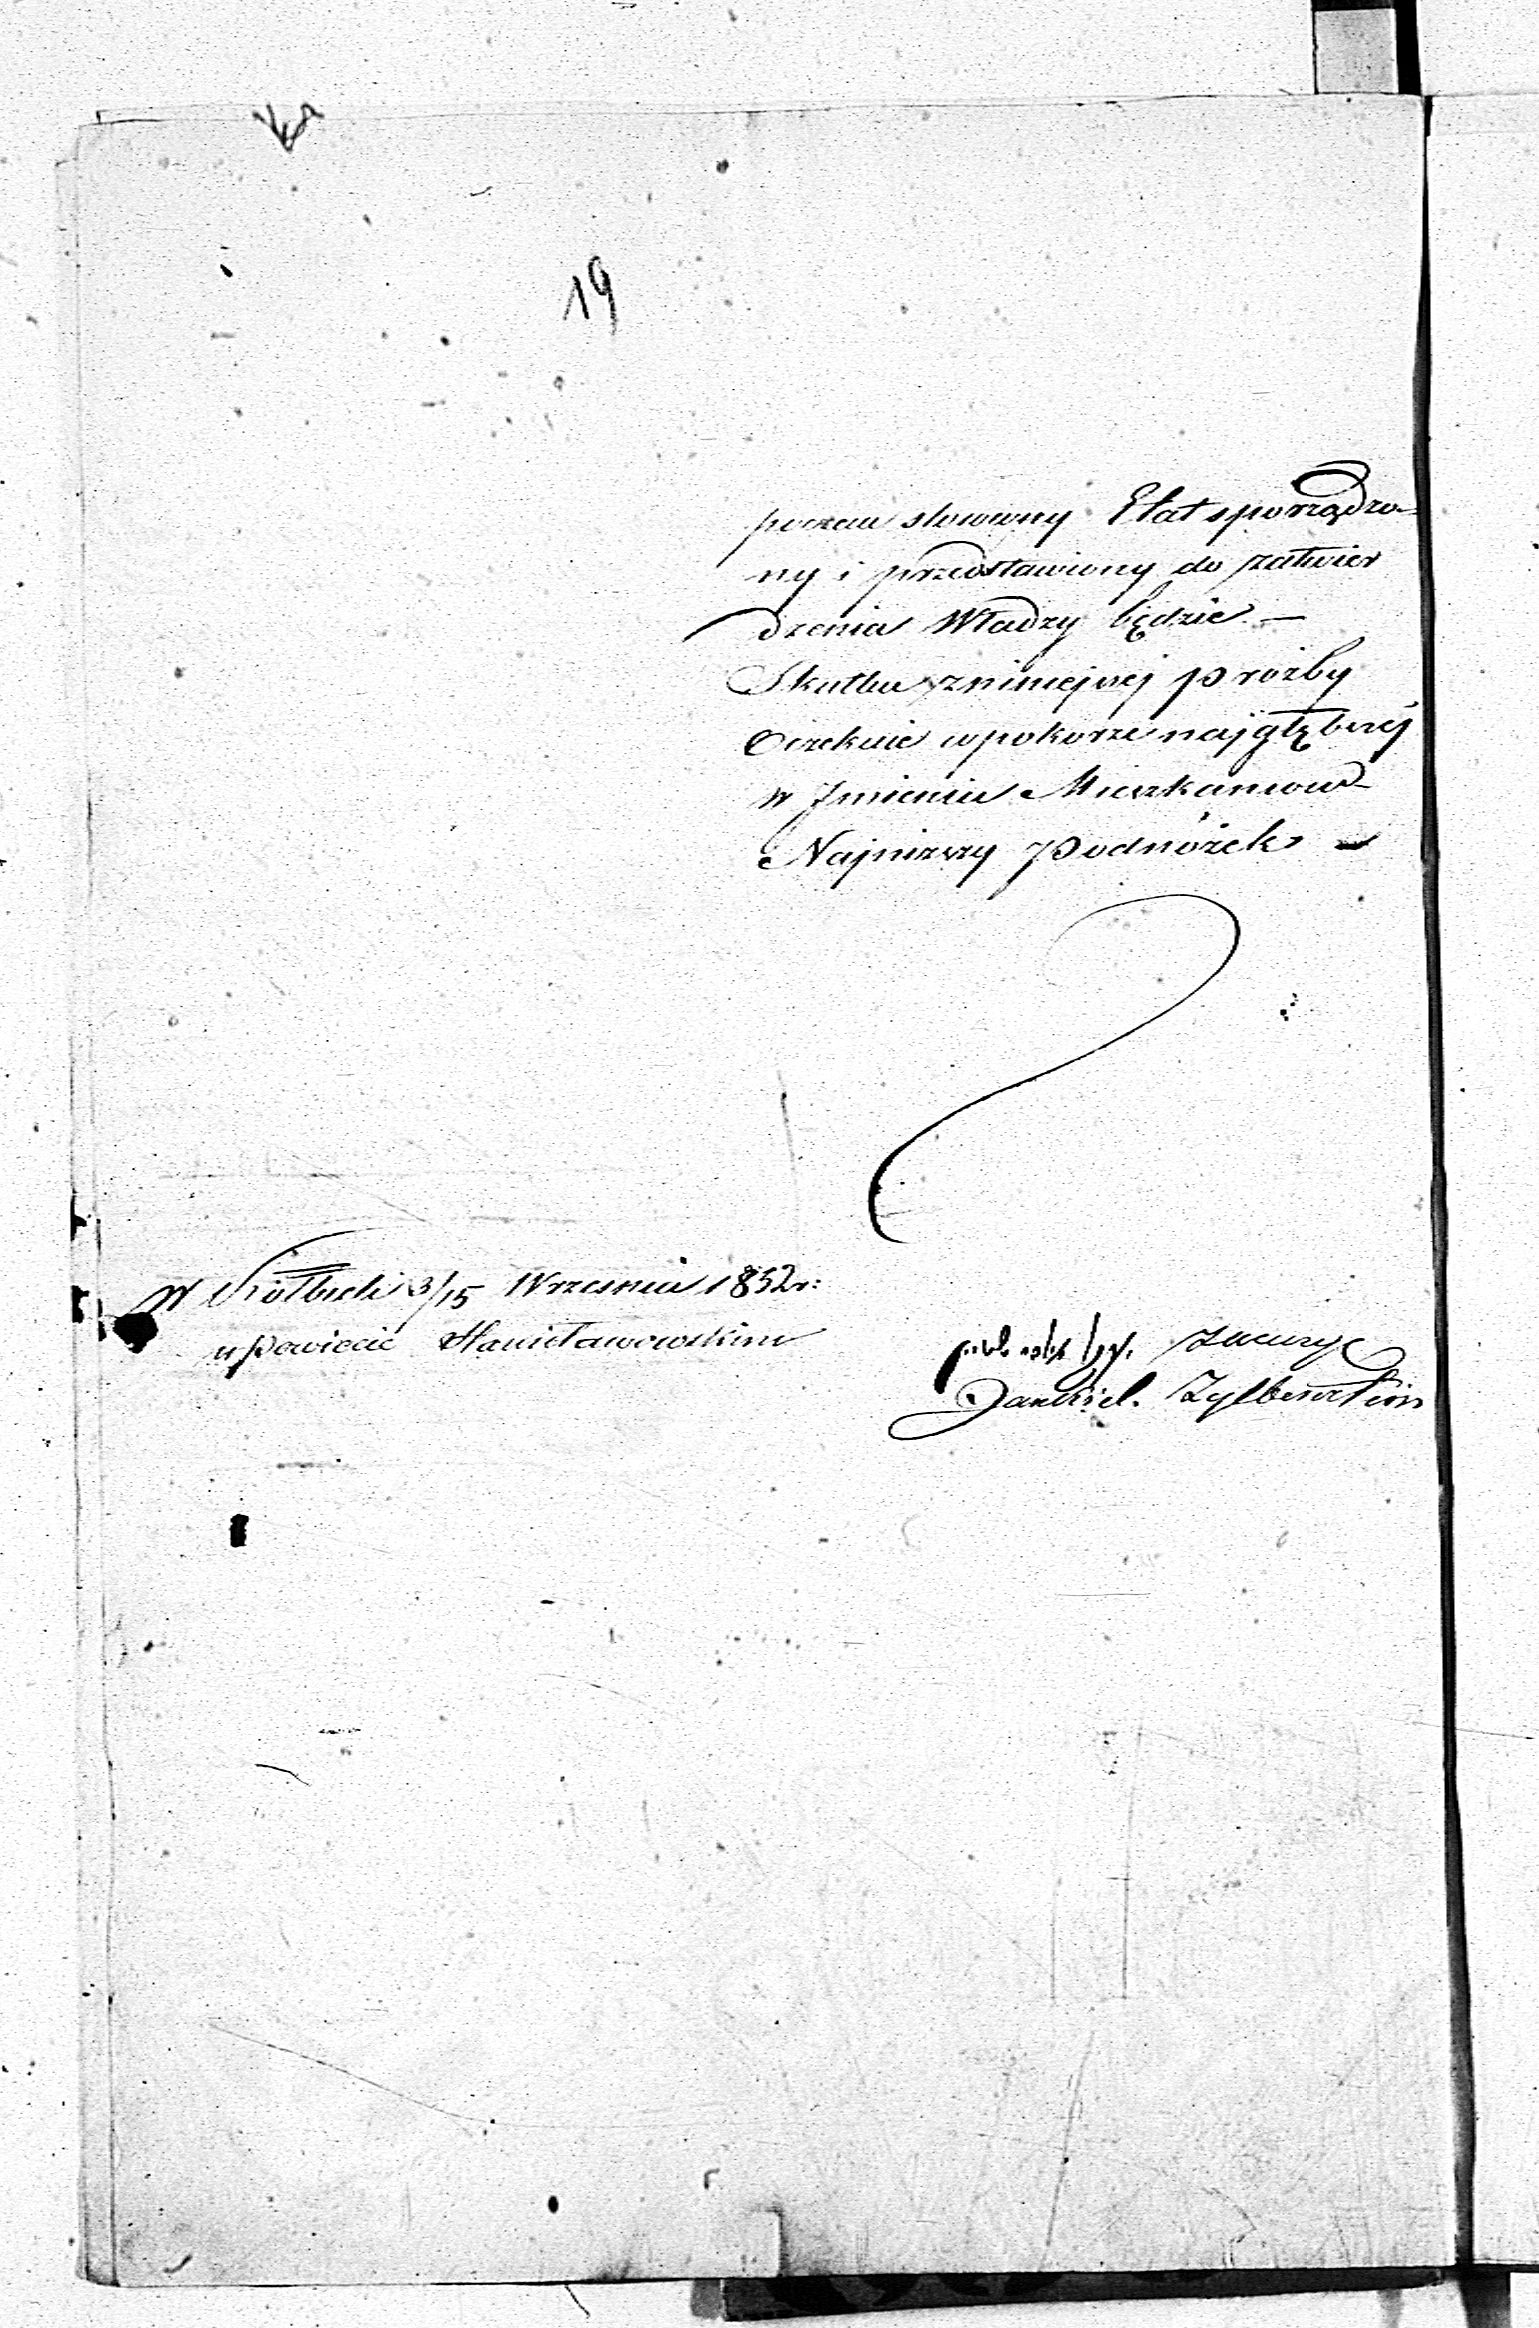 19
poczem stosowny Etat sporządzo-
ny i przedstawiony do zatwier
dzenia Władzy będzie —
Skutku z niniejszej prożby
Oczekuie w pokorze najgłębszej
w Jmieniu Mieszkancow
Najniższy Podnóżek —
W Kołbieli 3/15 Wrzesnia 1852 r:
w Powiecie Stanisławowskim
Jankiel Zylbersztein